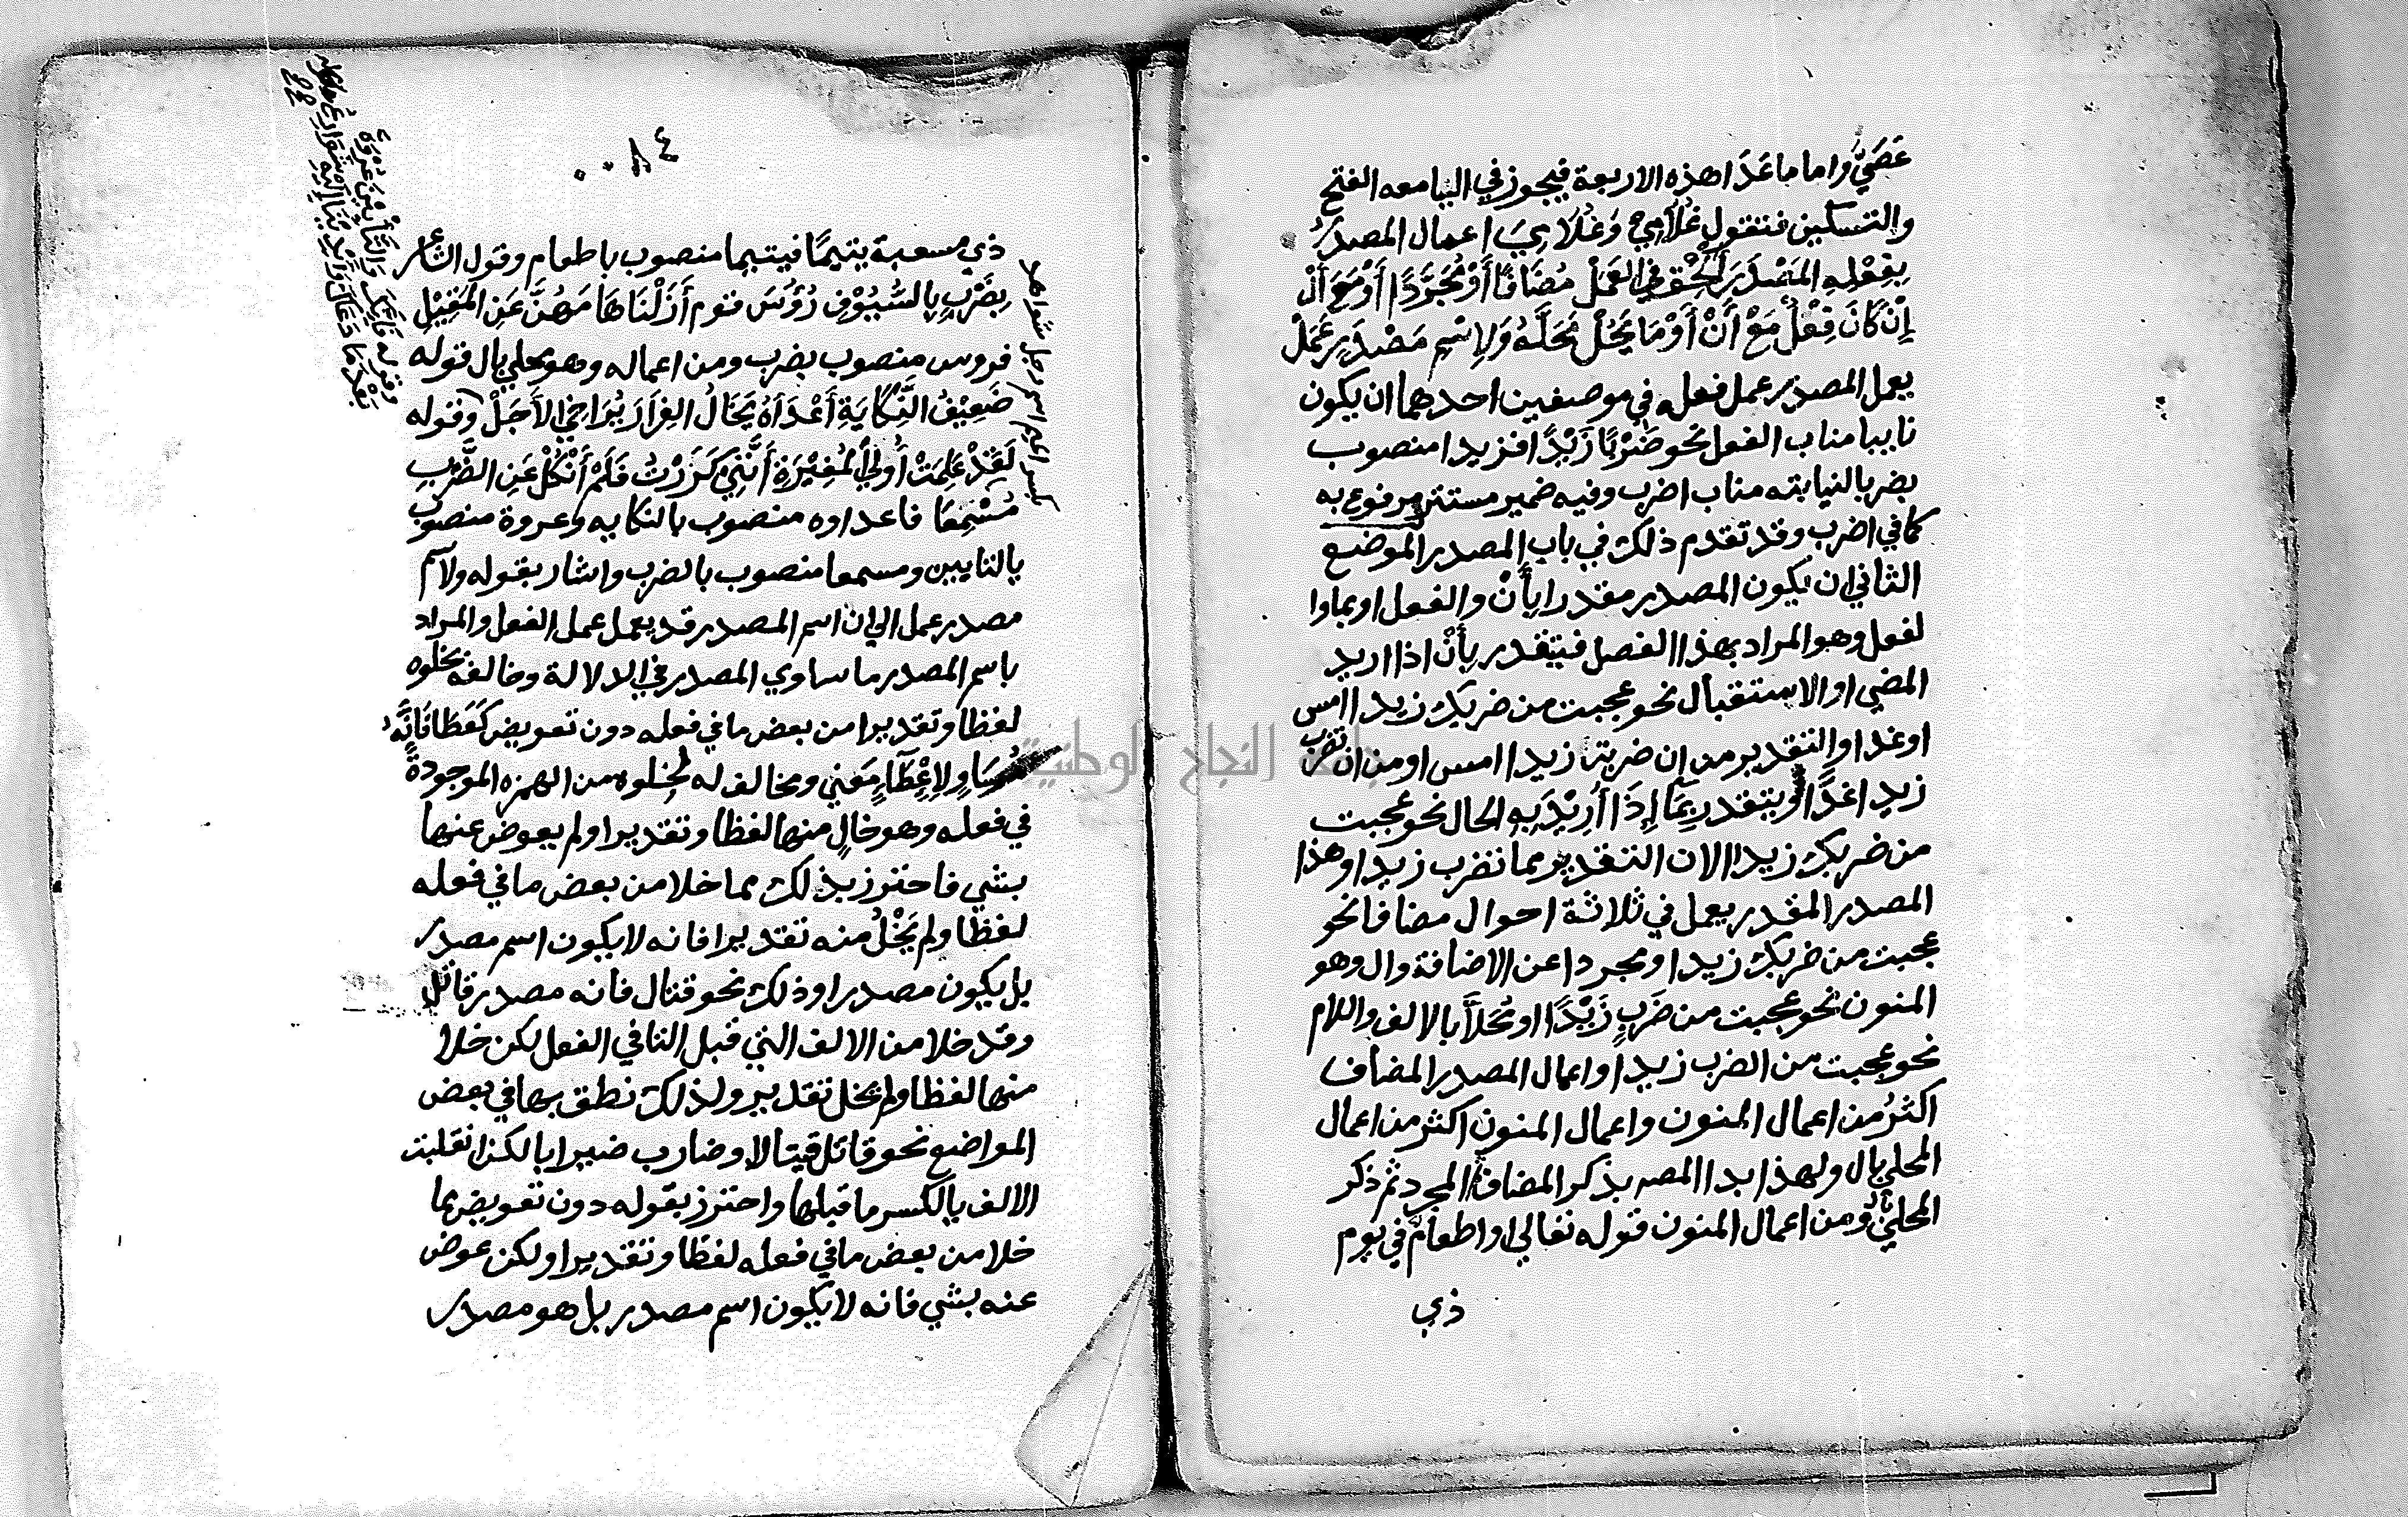 عَصَيَّ واما ما عَدَا هذه الاربعة فيجوز في اليا معه الفتح
والتسكين فتقول غُلَامِيْ وَغُلَامِيَ اعمال المصدر
بِفِعْلِهِ المَصْدَرَ أَلْحِقْ في العَمَلْ مُضَافًا أَوْ مُجَرَّدًا أَوْ مَعَ أَلْ
إِنْ كَانَ فِعْلٌ مَعَ أَنْ أَوْ مَا يَحُلْ مَحَلَّهُ وَلِاسْمِ مَصْدَرٍ عَمَلْ
يعمل المصدر عمل فعله في موضعين احدهما ان يكون
نايبا مناب الفعل نحو ضَرْبًا زَيْدًا فزيدا منصوب
بضربا لنيابته مناب اضرب وفيه ضمير مستتر مرفوع به
كما في اضرب وقد تقدم ذلك في باب المصدر الموضع
الثاني ان يكون المصدر مقدرا بِأَنْ والفعل او بما وا
لفعل وهو المراد بهذا الفصل فيتقدر بِأَنْ اذا اريد
المضي او الاستقبال نحو عجبت من ضربك زيدا امس
او غدا والتقدير من ان ضربت زيدا امس او من ان تضرب
زيدا غدًا ويتقدر بِمَا إِذَا أُرِيْدَ بِهِ الحال نحو عجبت
من ضربك زيدا الان التقدير مما تضرب زيدا وهذا
المصدر المقدر يعمل في ثلاثة احوال مضافا نحو
عجبت من ضربك زيدا ومجردا عن الاضافة وال وهو
المنون نحو عجبت من ضَرْبٍ زَيْدًا او مُحَلًّا بالالف واللام
نحو عجبت من الضرب زيدا واعمال المصدر المضاف
اكثرُ من اعمال المنون واعمال المنون اكثر من اعمال
المحلي بال ولهذا بدا المصـ بذكر المضاف المجرد ثم ذكر
المحلي ومن اعمال المنون قوله تعالى او اطعامٌ في يوم
ذي
٠٠٨٤
ذي مسغبة يتيمًا فيتيما منصوب باطعام وقول الشاعر
بِضَرْبٍ بِالسُّيُوْفِ رُؤُسَ قوم أَزَلْنَا هَامَهُنَّ عَنِ المَقِيْلِ
فروس منصوب بضرب ومن اعماله وهو محلي بال قوله
ضَعِيْفُ النِّكَايَةِ أَعْدَاءَهُ يَخَالُ الفِرَارَ يُرَاخِي الأَجَلْ وقوله
لَقَدْ عَلِمَتْ أُولَى المُغِيْرَةِ أَنَّنِيْ كَرَرْتُ فَلَمْ أَنْكُلْ عَنِ الضَّرْبِ
مُسْمِعَا فاعداوه منصوب بالنكايه وعروة منصوب
بالتايبين ومسمعا منصوب بالضرب واشار بقوله ولاسم
مصدر عمل الي ان اسم المصدر قد يعمل عمل الفعل والمراد
باسم المصدر ما ساوي المصدر في الدلالة وخالفه بخلوه
لفظا وتقديرا من بعض ما في فعله دون تعويض كَعَطَا فَإِنَّهُ
مُسَاوٍ لِإِعْطَاءٍ مَعْنى ومخالف له لخلوه من الهمزه الموجودة
في فعله وهو خالٍ منها لفظا وتقديرا ولم يعوض عنها
بشي فاحترز بذلك مما خلا من بعض ما في فعله
لفظا ولم يَخْلُ منه تقديرا فانه لا يكون اسم مصدر
بل يكون مصدرا وذلك نحو قتال فانه مصدر قاتل
وقد خلا من الالف التي قبل التا في الفعل لكن خلا
منها لفظا ولم يخل تقدير ولذلك نطق بها في بعض
المواضع نحو قاتل قيتالا وضارب ضيرابا لكن انقلبت
الالف يا لكسر ما قبلها واحترز بقوله دون تعويض مما
خلا من بعض ما في فعله لفظا وتقديرا ولكن عوض
عنه بشي فانه لا يكون اسم مصدر بل هو مصدر
وقوله فانك والتأبين عروة
بعد ما دعاك وايدينا اليه شوارع
جامعة النجاح الوطنية